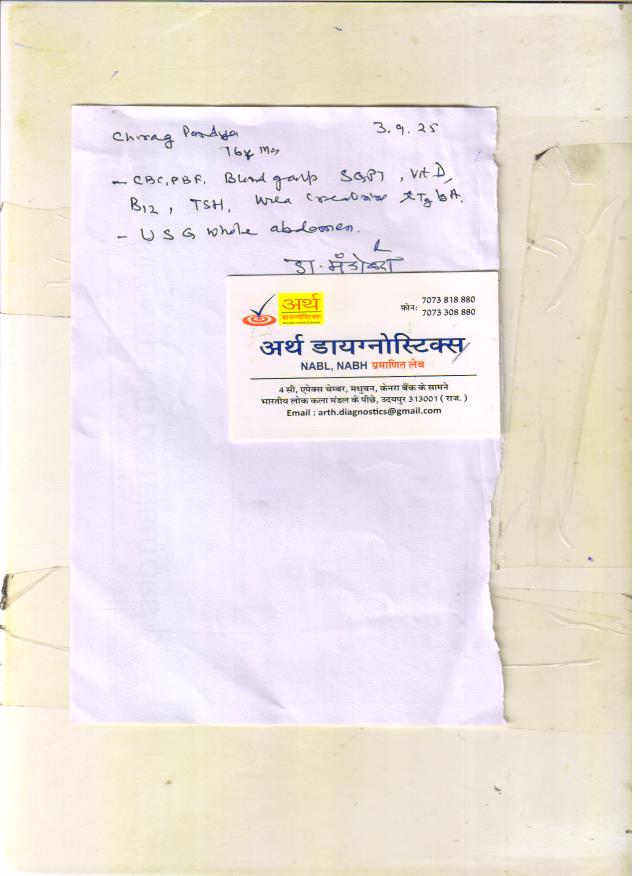 Chirag Pandya 3.9.25
- CBC, PBF, Blund SGPT, Vit D,
B12, TSH, Urea
- USG whole abdomen.
डा.
अर्थ
डायग्नोस्टिक्स
फोन: 7073 818 880
7073 308 880
अर्थ डायग्नोस्टिक्स
NABL, NABH प्रमाणित लेब
4 सी, एपेक्स चेम्बर, मधुबन, केनरा बैंक के सामने
भारतीय लोक कला मंडल के पीछे, उदयपुर 313001 ( राज. )
Email : arth.diagnostics@gmail.com